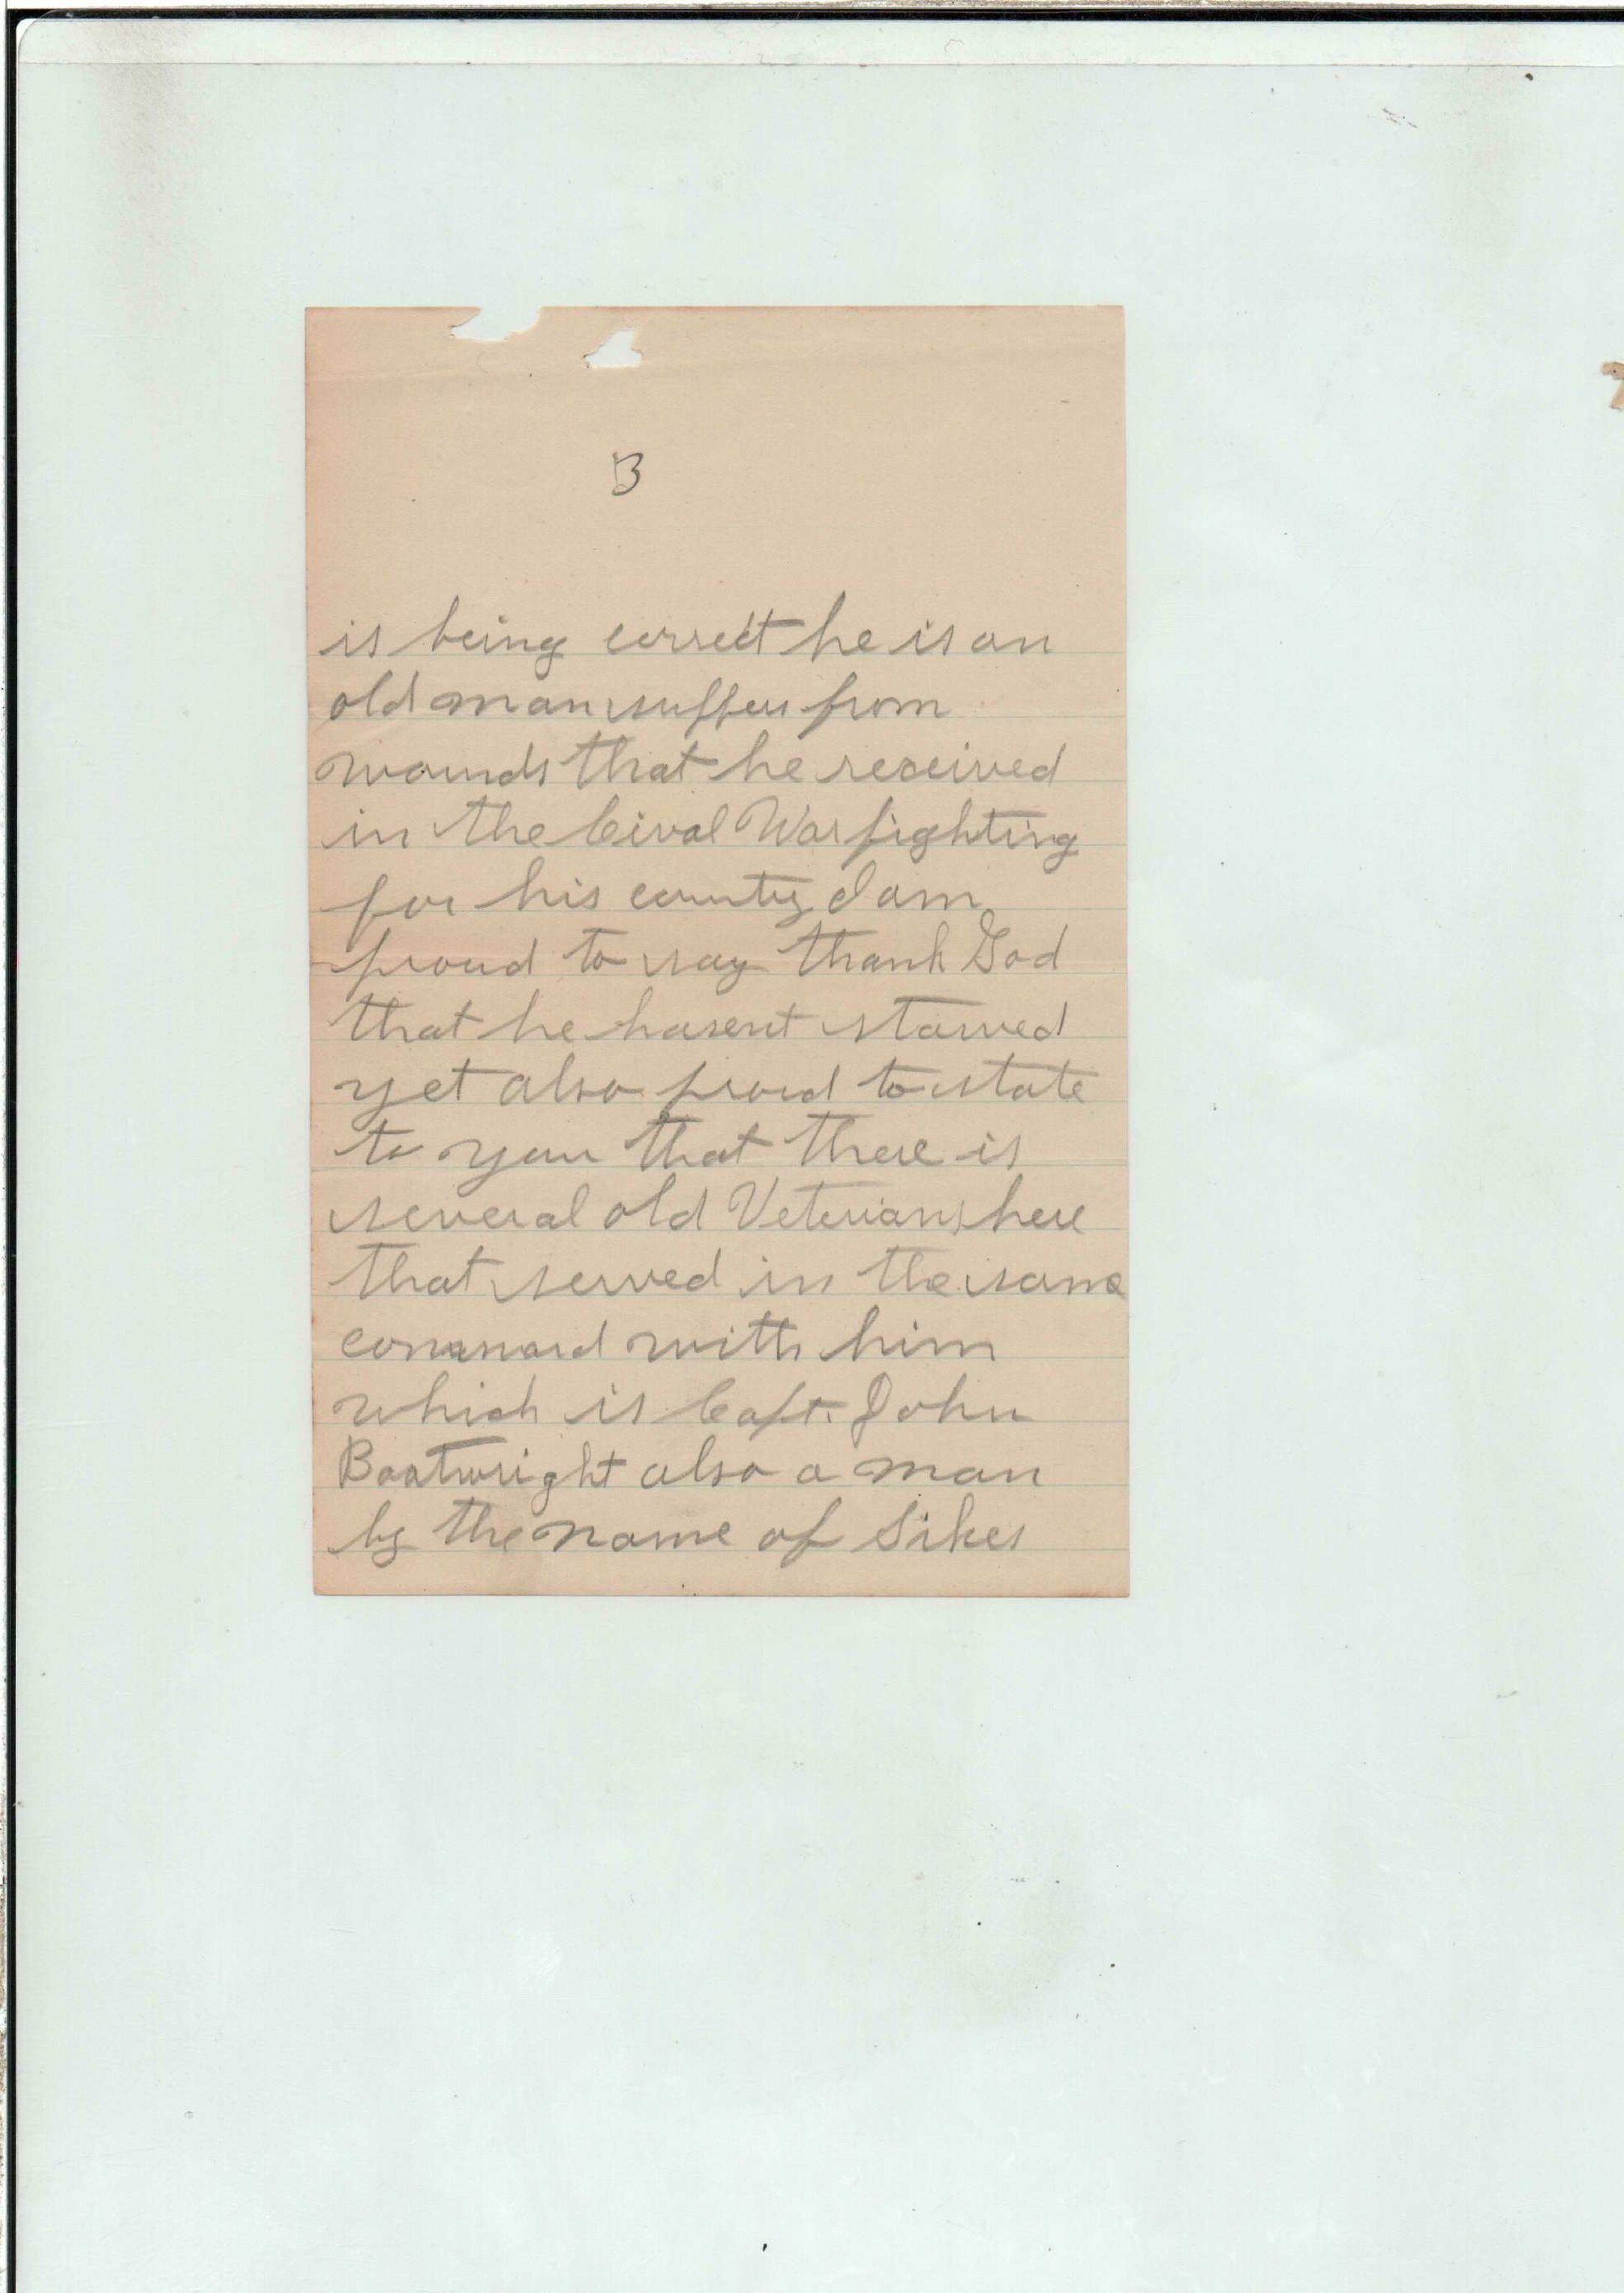 3
is being correct he is an
old man suffers from
wounds that he received
in the Cival War fighting
for his county I am
proud to say thank God
that he hasent starved
yet also proud to state
to you that there is
several old Veterians here
that served in the same
command with him
which is Capt. John
Boatwright also a man
by the name of Sikes